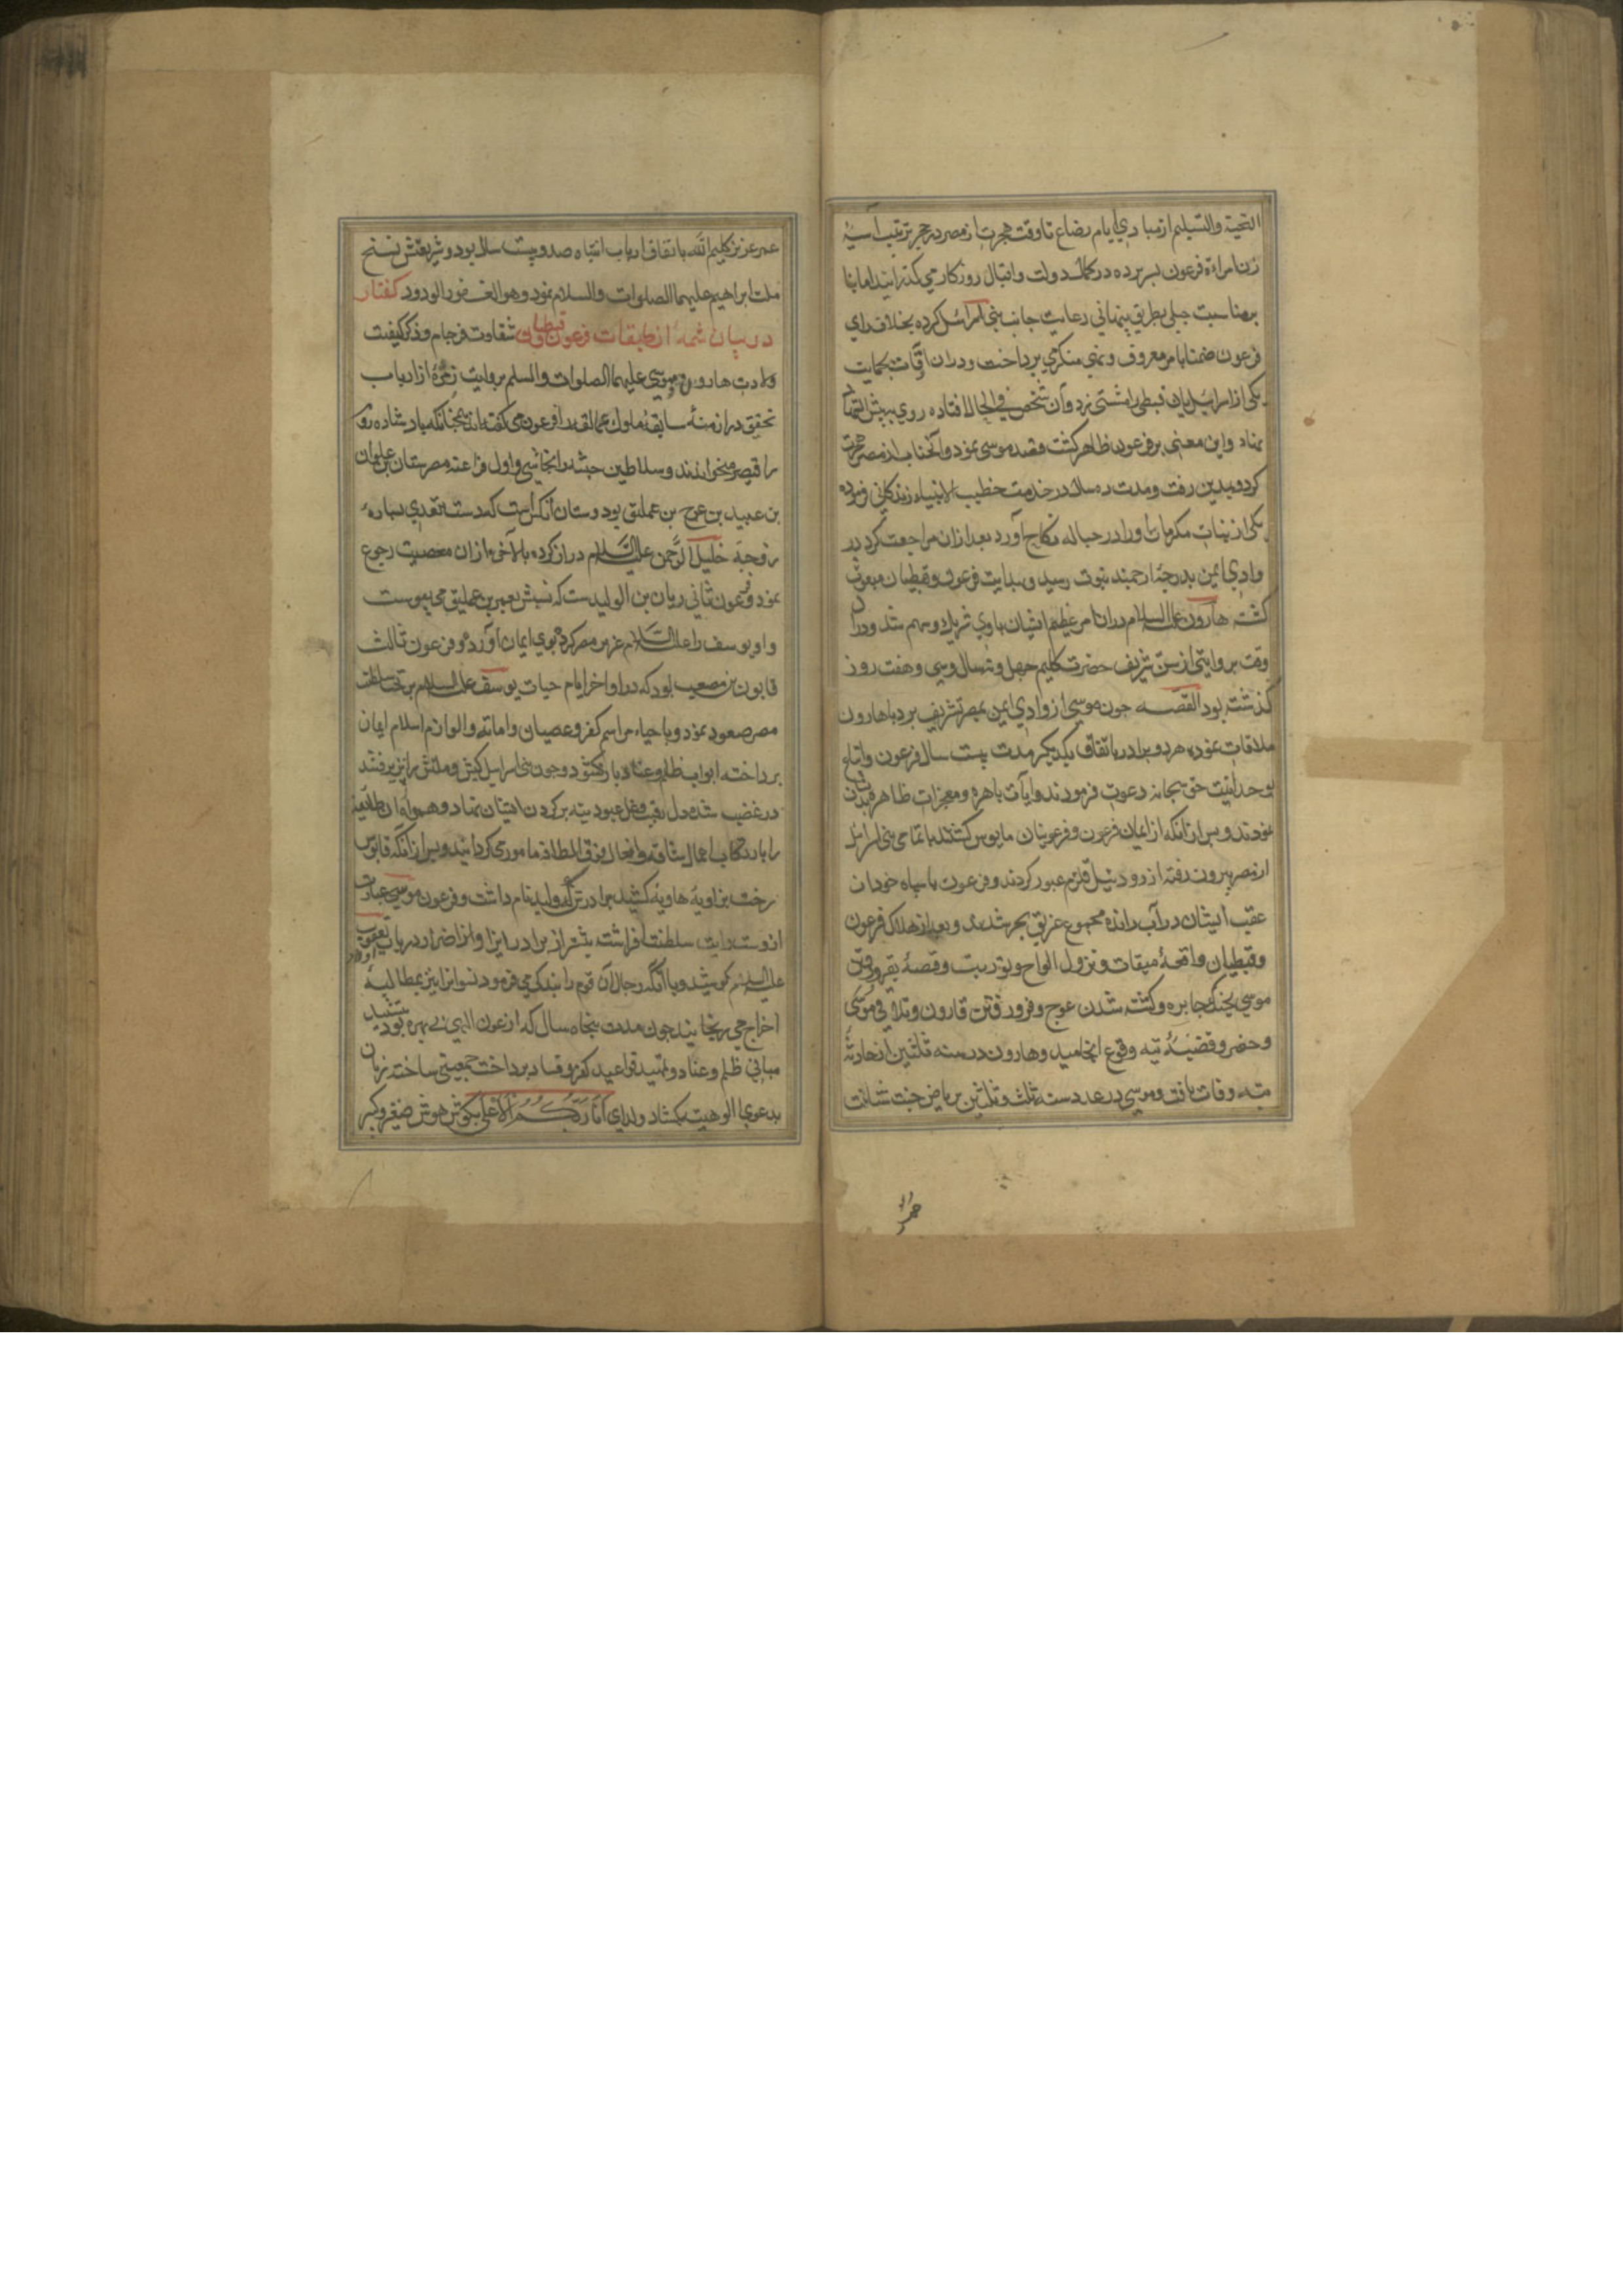 التحیة والتسلیم از مبادی ایام رضاع تا وقت هجرت از مصر در حجر تربیت آسیه
زن امراءة فرعون بسر برده در کمال دولت و اقبال روزکار می کذرانید اما بنا
بر مناسبت جبلی بطریق پنهانی رعایت جانب بنی اسرائیل کرده بخلاف رای
فرعون ضمنا بامر معروف و نهی منکر می پرداخت و دران اوقات بحمایت
یکی از اسرائیلیان قبطی را مشتی زد و آن شخص فی الحال افتاده روی ببئس المهاد
نهاد و این معنی بر فرعون ظاهر کشت قصد موسی نمود و آنجناب از مصر هجرت
کرده بمدین رفت و مدت ده سال در خدمت خطیب الانبیاء زندکانی فرموده
یکی از بنات مکرمات او را در حباله نکاح آورد بعد ازان مراجعت کرد در
وادی ایمن بدرجه ارجمند نبوت رسید و بهدایت فرعون و قبطیان مبعوث
کشته هارون علیه السلام دران امر عظیم الشان با وی شریک و سهیم شد و دران
وقت بروایتی از سن شریف حضرت کلیم چهل و نه سال و سی و هفت روز
کذشته بود القصه چون موسی از وادی ایمن بمصر تشریف برد با هارون
ملاقات نموده هر دو برادر باتفاق یکدیکر مدت بیست سال فرعون و اتباع
بوحدانیت حق سبحانه دعوت فرمودند و آیات باهره و معجزات ظاهره بدان
نمودند و پس ازانکه از ایمان فرعون و فرعونیان مایوس کشتند با تمامی بنی اسرائیل
از مصر بیرون رفته از رود نیل قلزم عبور کردند و فرعون با سپاه خود از
عقب ایشان در آب رانده مجموع غریق بحر شدند و بعد از هلاک فرعون
و قبطیان واقعه میقات و نزول الواح و توریت و قصه بقر و رفتن
موسی بجنک جبابره و کشته شدن عوج و فرو رفتن قارون و تلاقی موسی
و خضر و قضیه تیه وقوع انجامید و هارون در سنه ثلثین از حادثه
تیه وفات یافت و موسی در عدد سنه ثلث و ثلثین بریاض جنت شتافت
عمر عزیز کلیم الله باتفاق ارباب انتباه صد و بیست سال بود و شریعتش نسخ
ملت ابراهیم علیهما الصلوات والسلام نمود و هو الغفور الودود کفتار
در بیان شمه از طبقات فرعون و قبطیان شقاوت فرجام و ذکر کیفیت
ولادت هارون و موسی علیهما الصلوات والسلم بروایت زمره از ارباب
تحقیق در ازمنه سابقه ملوک عمالقه را فرعون می کفته اند چنانکه پادشاه روم
را قیصر میخوانند و سلاطین حبشه را نجاشی و اول فراعنه مصر سنان بن علوان
بن عبید بن عوج بن عملیق بود و سنان آنکس است که دست تعدی بساره
زوجه خلیل الرحمن علیه السلام دراز کرده بالآخره ازان معصیت رجوع
نمود و فرعون ثانی ریان بن الولیدست که نسبش بعمرو بن عملیق می پیوست
و او یوسف را علیه السلام عزیز مصر کرد بوی ایمان آورد و فرعون ثالث
قابوس بن مصعب بود که در اواخر ایام حیات یوسف علیه السلام بر تخت سلطنت
مصر صعود نمود و باحیاء مراسم کفر و عصیان و اماتة والوازم اسلام ایمان
پرداخته ابواب ظلم و عناد باز کشود و چون بنی اسرائیل کیش و ملتش را نپذیرفتند
در غضب شده دل رقیت و غل عبودیت بر کردن ایشان نهاد و همواره آن طائفه
را بارتکاب اعمال شاقه و افعال فوق الطاقه مامور می کردانید و پس ازانکه قابوس
رخت بزاویه هاویه کشید برادرش که ولید نام داشت و فرعون موسی عبارت
ازوست رایت سلطنت افراشت بیشتر از برادر در ایذا و اضرار در باب اولاد یعقوب
علیه السلام کوشید و با آنکه رجال آن قوم را بندکی می فرمود نسوانرا نیز بمطالبه
اخراج می رنجانید چون مدت پنجاه سال که از عون الهی بی بهره بود بتشیید
مبانی ظلم و عناد و تمهید قواعد کفر و فساد پرداخت جمعیتی ساخته زبان
بدعوی الوهیت بکشاد و ندای انا ربکم الاعلی بکوش هوش صغیر و کبیر